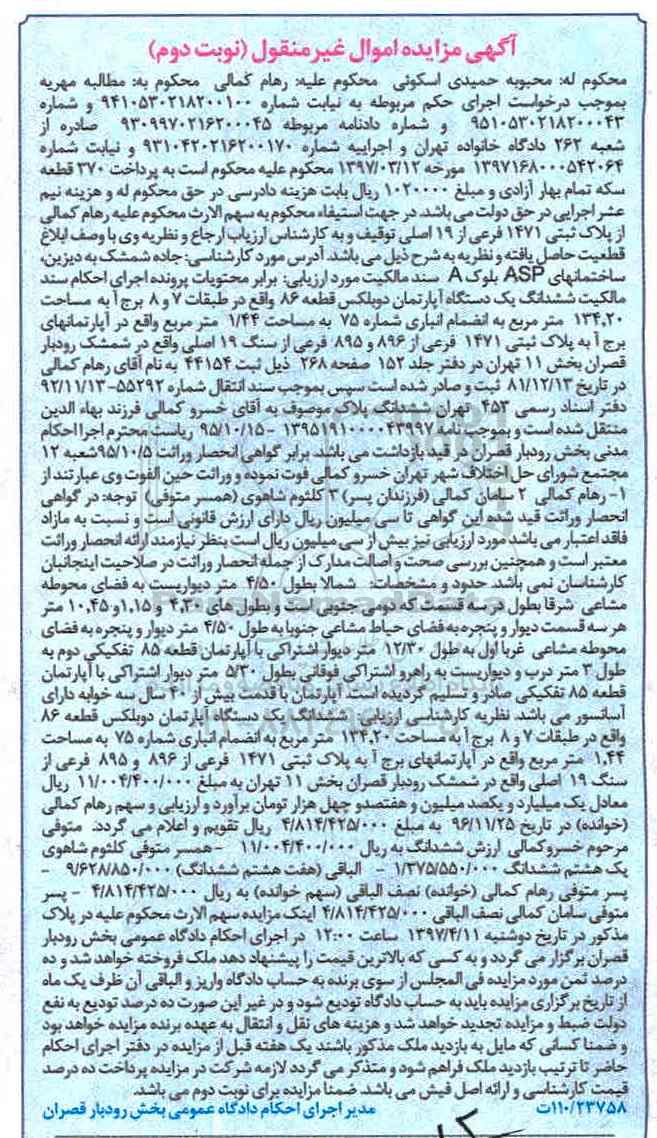 آگهی مزایده اموال غیرمنقول (نوبت دوم)
محکوم له: محبوبه حمیدی اسکوئی محکوم علیه: رهام کمالی محکوم به: مطالبه مهریه
بموجب درخواست اجرای حکم مربوطه به نیابت شماره ۹۴۱۰۵۳۰۲۱۸۲۰۰۱۰۰ و شماره
۹۵۱۰۵۳۰۲۱۸۲۰۰۰۴۳ و شماره دادنامه مربوطه ۹۳۰۹۹۷۰۲۱۶۲۰۰۰۴۵ صادره از
شعبه ۲۶۲ دادگاه خانواده تهران و اجراییه شماره ۹۳۱۰۴۲۰۲۱۶۲۰۰۱۷۰ و نیابت شماره
۱۳۹۷۱۶۸۰۰۰۵۴۲۰۶۴ مورخه ۱۳۹۷/۰۳/۱۲ محکوم علیه محکوم است به پرداخت ۳۷۰ قطعه
سکه تمام بهار آزادی و مبلغ ۱۰۲۰۰۰۰ ریال بابت هزینه دادرسی در حق محکوم له و هزینه نیم
عشر اجرایی در حق دولت می باشد. در جهت استیفاء محکوم به سهم الارث محکوم علیه رهام کمالی
از پلاک ثبتی ۱۴۷۱ فرعی از ۱۹ اصلی توقیف و به کارشناس ارزیاب ارجاع و نظریه وی با وصف ابلاغ
قطعیت حاصل یافته و نظریه به شرح ذیل می باشد. آدرس مورد کارشناسی: جاده شمشک به دیزین،
ساختمانهای ASP بلوک A سند مالکیت مورد ارزیابی: برابر محتویات پرونده اجرای احکام سند
مالکیت ششدانگ یک دستگاه آپارتمان دوبلکس قطعه ۸۶ واقع در طبقات ۷ و ۸ برج آ به مساحت
۱۳۴،۲۰ متر مربع به انضمام انباری شماره ۷۵ به مساحت ۱/۴۴ متر مربع واقع در آپارتمانهای
برج آ به پلاک ثبتی ۱۴۷۱ فرعی از ۸۹۶ و ۸۹۵ فرعی از سنگ ۱۹ اصلی واقع در شمشک رودبار
قصران بخش ۱۱ تهران در دفتر جلد ۱۵۲ صفحه ۲۶۸ ذیل ثبت ۴۴۱۵۴ به نام آقای رهام کمالی
در تاریخ ۸۱/۱۲/۱۳ ثبت و صادر شده است سپس بموجب سند انتقال شماره ۵۵۲۹۲-۹۲/۱۱/۱۳
دفتر اسناد رسمی ۴۵۳ تهران ششدانگ پلاک موصوف به آقای خسرو کمالی فرزند بهاء الدین
منتقل شده است و بموجب نامه ۱۳۹۵۱۹۱۰۰۰۰۴۳۹۹۷ -۹۵/۱۰/۱۵ ریاست محترم اجرا احکام
مدنی بخش رودبار قصران در قید بازداشت می باشد. برابر گواهی انحصار وراثت ۹۵/۱۰/۵شعبه ۱۲
مجتمع شورای حل اختلاف شهر تهران خسرو کمالی فوت نموده و وراثت حین الفوت وی عبارتند از
۱- رهام کمالی ۲ سامان کمالی (فرزندان پسر) ۳ کلثوم شاهوی (همسر متوفی) توجه: در گواهی
انحصار وراثت قید شده این گواهی تا سی میلیون ریال دارای ارزش قانونی است و نسبت به مازاد
فاقد اعتبار می باشد مورد ارزیابی نیز بیش از سی میلیون ریال است بنظر نیازمند ارائه انحصار وراثت
معتبر است و همچنین بررسی صحت و اصالت مدارک از جمله انحصار وراثت در صلاحیت اینجانبان
کارشناسان نمی باشد. حدود و مشخصات: شمالا بطول ۴/۵۰ متر دیواریست به فضای محوطه
مشاعی شرقا بطول در سه قسمت که دومی جنوبی است و بطول های ۴،۳۰ و ۱،۱۵و ۱۰،۴۵ متر
هر سه قسمت دیوار و پنجره به فضای حیاط مشاعی جنوبا به طول ۴/۵۰ متر دیوار و پنجره به فضای
محوطه مشاعی غربا اول به طول ۱۲/۳۰ متر دیوار اشتراکی با آپارتمان قطعه ۸۵ تفکیکی دوم به
طول ۳ متر درب و دیواریست به راهرو اشتراکی فوقانی بطول ۵/۳۰ متر دیوار اشتراکی با آپارتمان
قطعه ۸۵ تفکیکی صادر و تسلیم گردیده است. آپارتمان با قدمت بیش از ۴۰ سال سه خوابه دارای
آسانسور می باشد. نظریه کارشناسی ارزیابی ششدانگ یک دستگاه آپارتمان دوبلکس قطعه ۸۶
واقع در طبقات ۷ و ۸ برج آ به مساحت ۱۳۴،۲۰ متر مربع به انضمام انباری شماره ۷۵ به مساحت
۱،۴۴ متر مربع واقع در آپارتمانهای برج آ به پلاک ثبتی ۱۴۷۱ فرعی از ۸۹۶ و ۸۹۵ فرعی از
سنگ ۱۹ اصلی واقع در شمشک رودبار قصران بخش ۱۱ تهران به مبلغ ۱۱/۰۰۴/۴۰۰/۰۰۰ ریال
معادل یک میلیارد و یکصد میلیون و هفتصدو چهل هزار تومان برآورد و ارزیابی و سهم رهام کمالی
(خوانده) در تاریخ ۹۶/۱۱/۲۵ به مبلغ ۴/۸۱۴/۴۲۵/۰۰۰ ریال تقویم و اعلام می گردد. متوفی
مرحوم خسروکمالی ارزش ششدانگ به ریال ۱۱/۰۰۴/۴۰۰/۰۰۰ -همسر متوفی کلثوم شاهوی
یک هشتم ششدانگ ۱/۳۷۵/۵۵۰/۰۰۰ - الباقی (هفت هشتم ششدانگ) ۹/۶۲۸/۸۵۰/۰۰۰ -
پسر متوفی رهام کمالی (خوانده) نصف الباقی (سهم خوانده) به ریال ۴/۸۱۴/۴۲۵/۰۰۰ - پسر
متوفی سامان کمالی نصف الباقی ۴/۸۱۴/۴۲۵/۰۰۰ اینک مزایده سهم الارث محکوم علیه در پلاک
مذکور در تاریخ دوشنبه ۱۳۹۷/۴/۱۱ ساعت ۱۲:۰۰ در اجرای احکام دادگاه عمومی بخش رودبار
قصران برگزار می گردد و به کسی که بالاترین قیمت را پیشنهاد دهد ملک فروخته خواهد شد و ده
درصد ثمن مورد مزایده فی المجلس از سوی برنده به حساب دادگاه واریز و الباقی آن ظرف یک ماه
از تاریخ برگزاری مزایده باید به حساب دادگاه تودیع شود و در غیر این صورت ده درصد تودیع به نفع
دولت ضبط و مزایده تجدید خواهد شد و هزینه های نقل و انتقال به عهده برنده مزایده خواهد بود
و ضمنا کسانی که مایل به بازدید ملک مذکور باشند یک هفته قبل از مزایده در دفتر اجرای احکام
حاضر تا ترتیب بازدید ملک فراهم شود و متذکر می گردد لازمه شرکت در مزایده پرداخت ده درصد
قیمت کارشناسی و ارائه اصل فیش می باشد. ضمنا مزایده برای نوبت دوم می باشد.
۱۱۰/۲۳۷۵۸ت مدیر اجرای احکام دادگاه عمومی بخش رودبار قصران